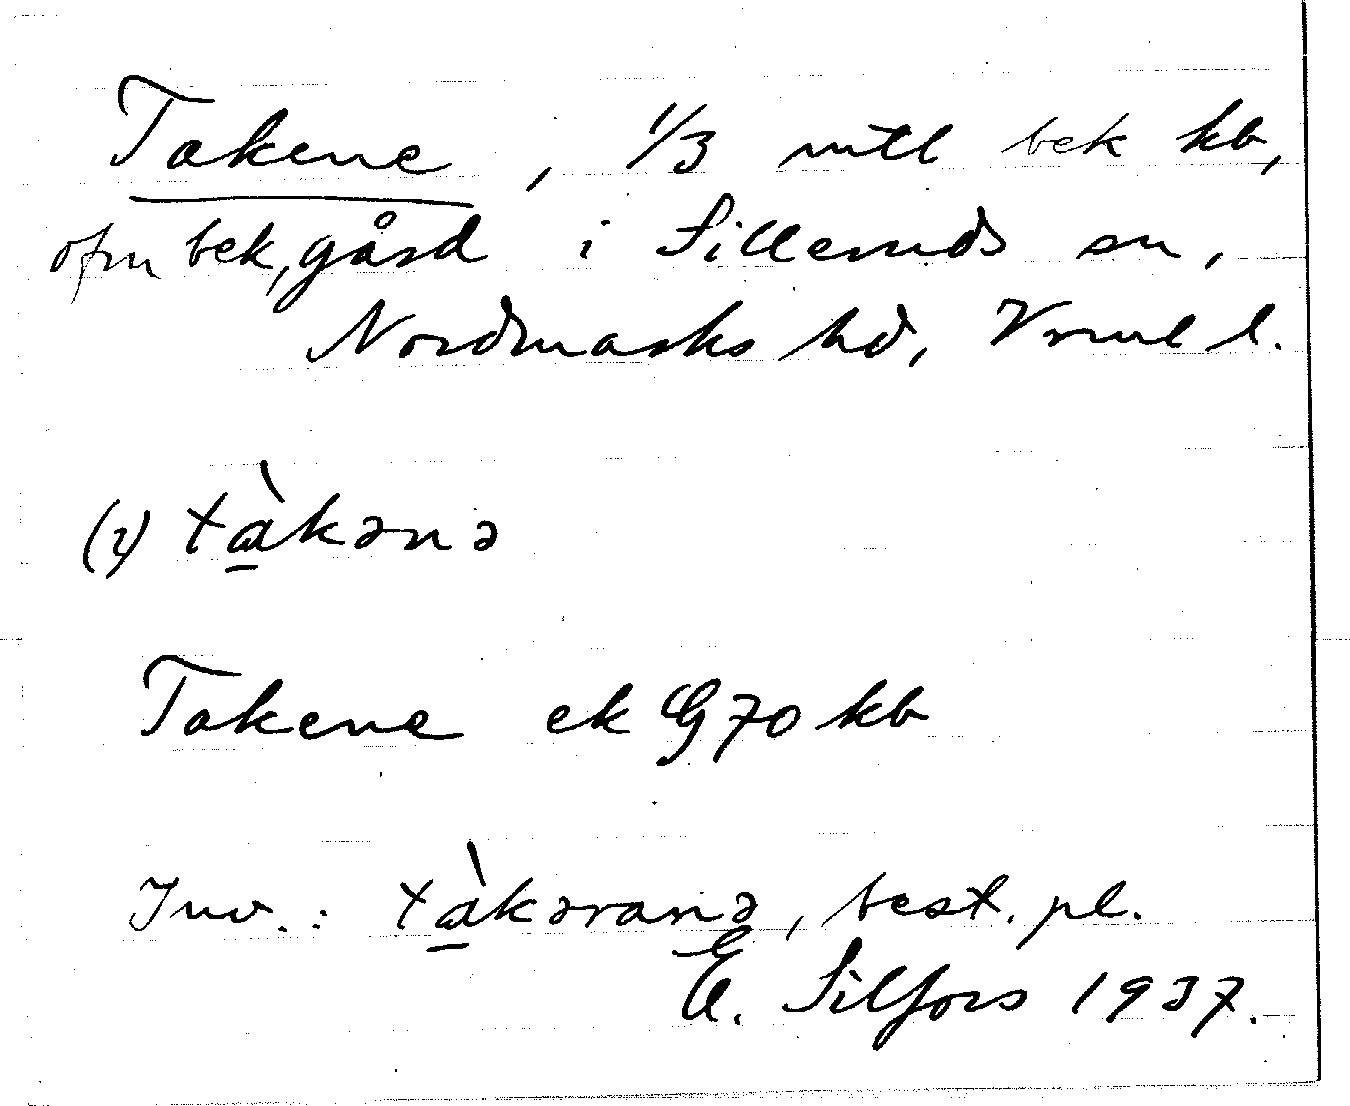 Takene, 1/3 mtl bek kb,
ofm bek, gård i Silleruds sn,
Nordmarks hd, Vrml l.
(i) tàkənə
Takene ek G70 kb
Inv.: tàkəranə, best. pl.
E. Silfors 1937.